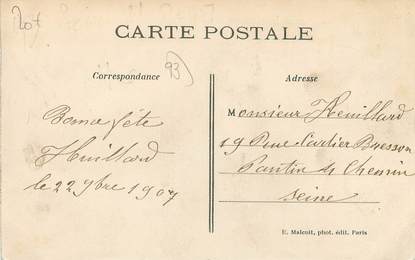 207
CARTE POSTALE
Correspondance
93
Adresse
Bonne fête
Huillard
le 22 9bre 1907
Monsieur Heuillard
19 Rue Cartier Bresson
Pantin 4 Chemin
Seine
E. Malcuit, phot. édit. Paris